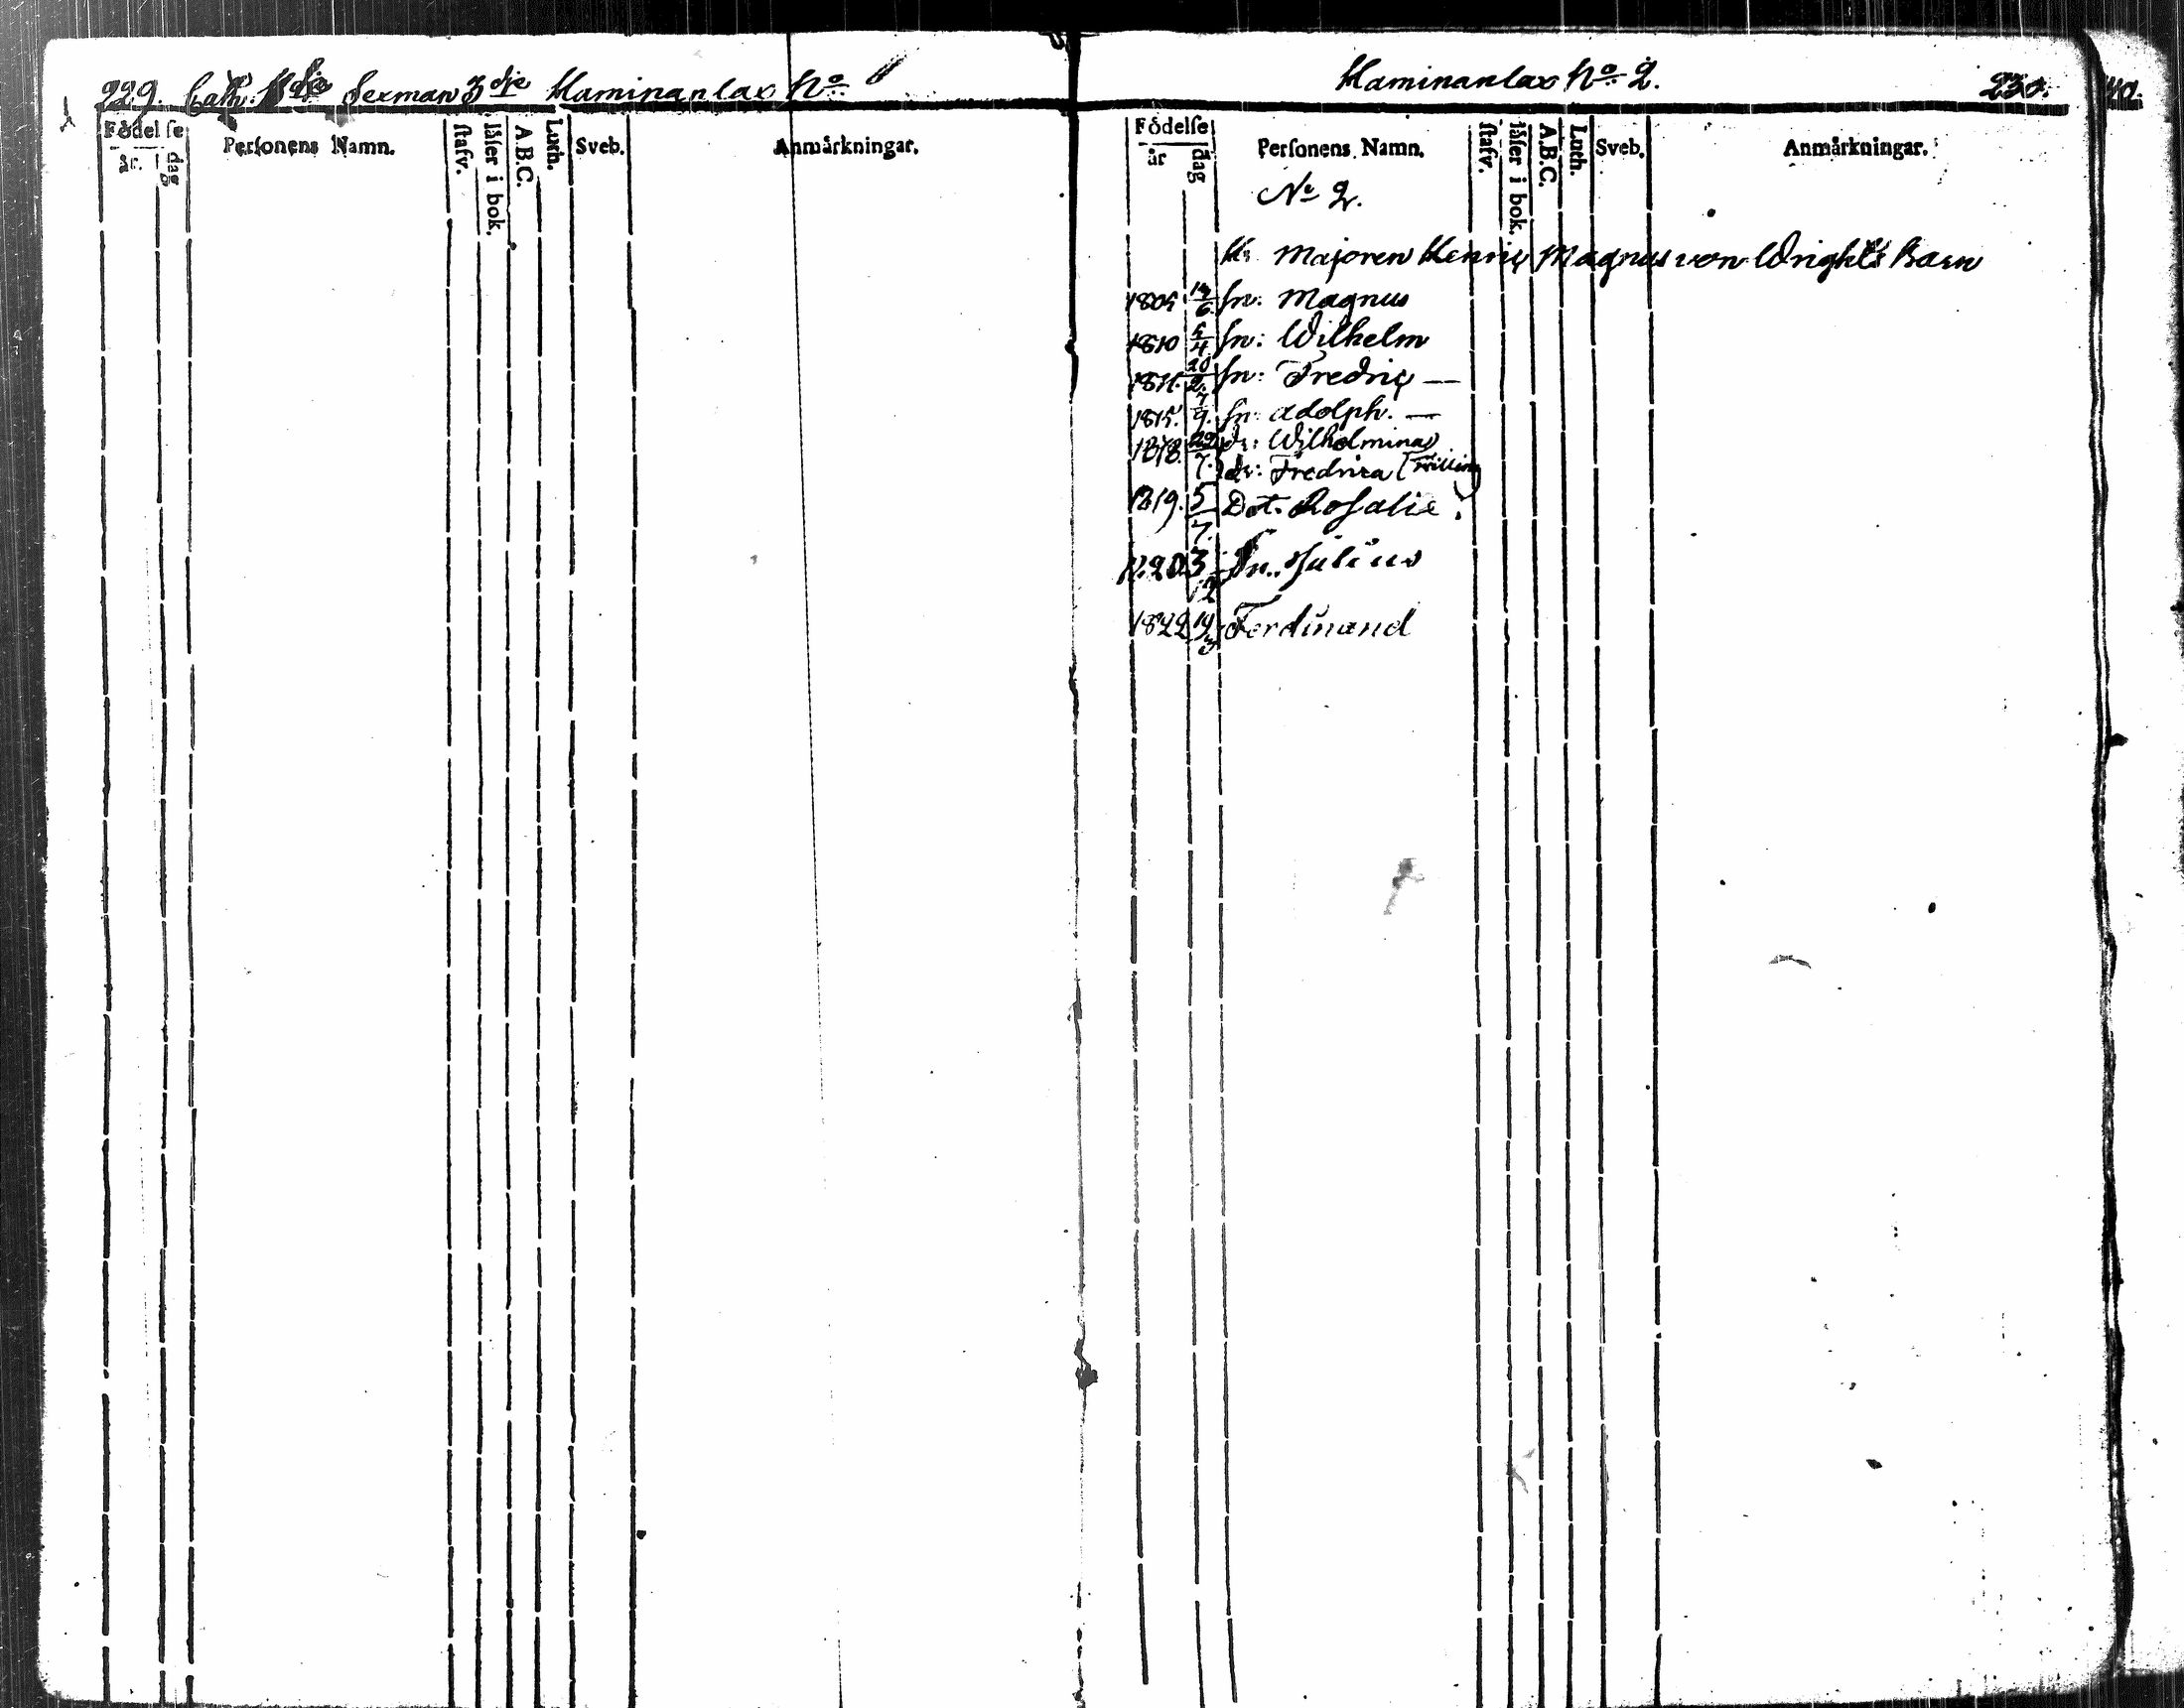 229. Cath: 11 dje Sexman 3 dje Haminanlax No 1
Födelse
år. dag
Personens Namn.
stafv.
läser i bok.
A.B.C.
Luth.
Sveb.
Anmärkningar.
Haminanlax No 2. 230.
Födelse
år dag
Personens Namn.
stafv.
läser i bok.
A.B.C.
Luth.
Sveb.
Anmärkningar.
No 2.
Hr Majoren Henric Magnus von Wrights Barn
1805 13/6 sn: Magnus
1810 5/4 sn: Wilhelm
20/2. sn: Fredric —
1815. 7/9. sn: Adolph. —
1818. 22/7. dr: Wilhelmina
dr: Fredrica Tvilling
1819. 5/7. Dot. Rosalie.
1820. 3/12 Sn. Julius
1822 19/3 Ferdinand